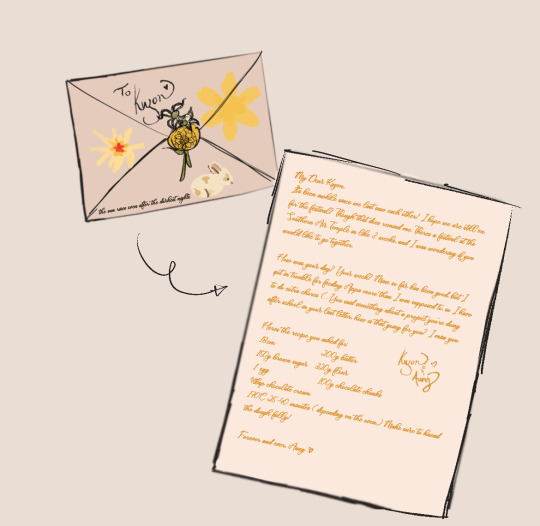 To Kyon
the sun rises even after the darkest nights
My Dear Kyon,
Its been awhile since we last saw each other! I hope we are still on
for the festival? Though that does remind me. Theres a festival at the
Southern Air Temple in like 2 weeks, and I was wondering if you
would like to go together.
How was your day? Your week? Mine so far has been good but I
got in trouble for feeding Appa more than I was supposed to, so I have
to do extra chores :( You said something about a project you're doing
after school in your last letter, how is that going for you? I miss you
Heres the recipe you asked for:
200g butter
180g brown sugar 320g flour
1 egg 100g chocolate chunks
chocolate cream
190C 25-40 minutes (depending on the oven.) Make sure to knead
the dough fully!
Kyon
&
Aang
Forever and ever, Aang